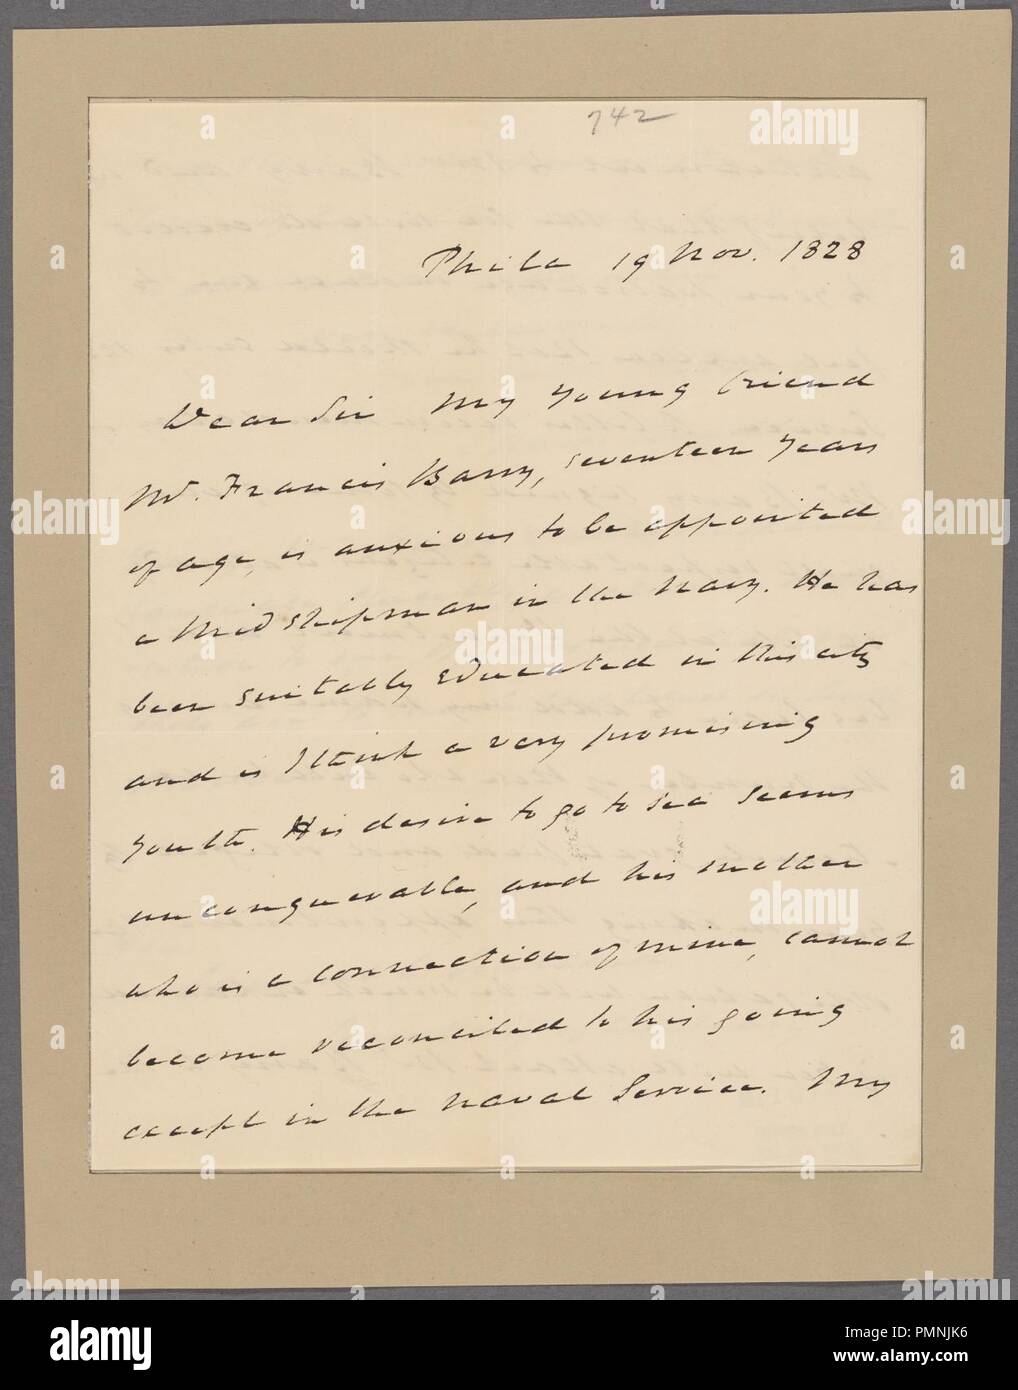 742
Phila 19 Nov. 1828
Dear Sir My young friend
Mr. Francis Barry, seventeen years
of age, is anxious to be appointed
a Midshipman in the Navy. He has
been suitably educated in this city
and is I think a very promising
youth. His desire to go to sea seems
unconquerable, and his mother
who is a connection of mine, cannot
become reconciled to his going
except in the Naval Service. My
alamy
Image ID: PMNJK6
www.alamy.com